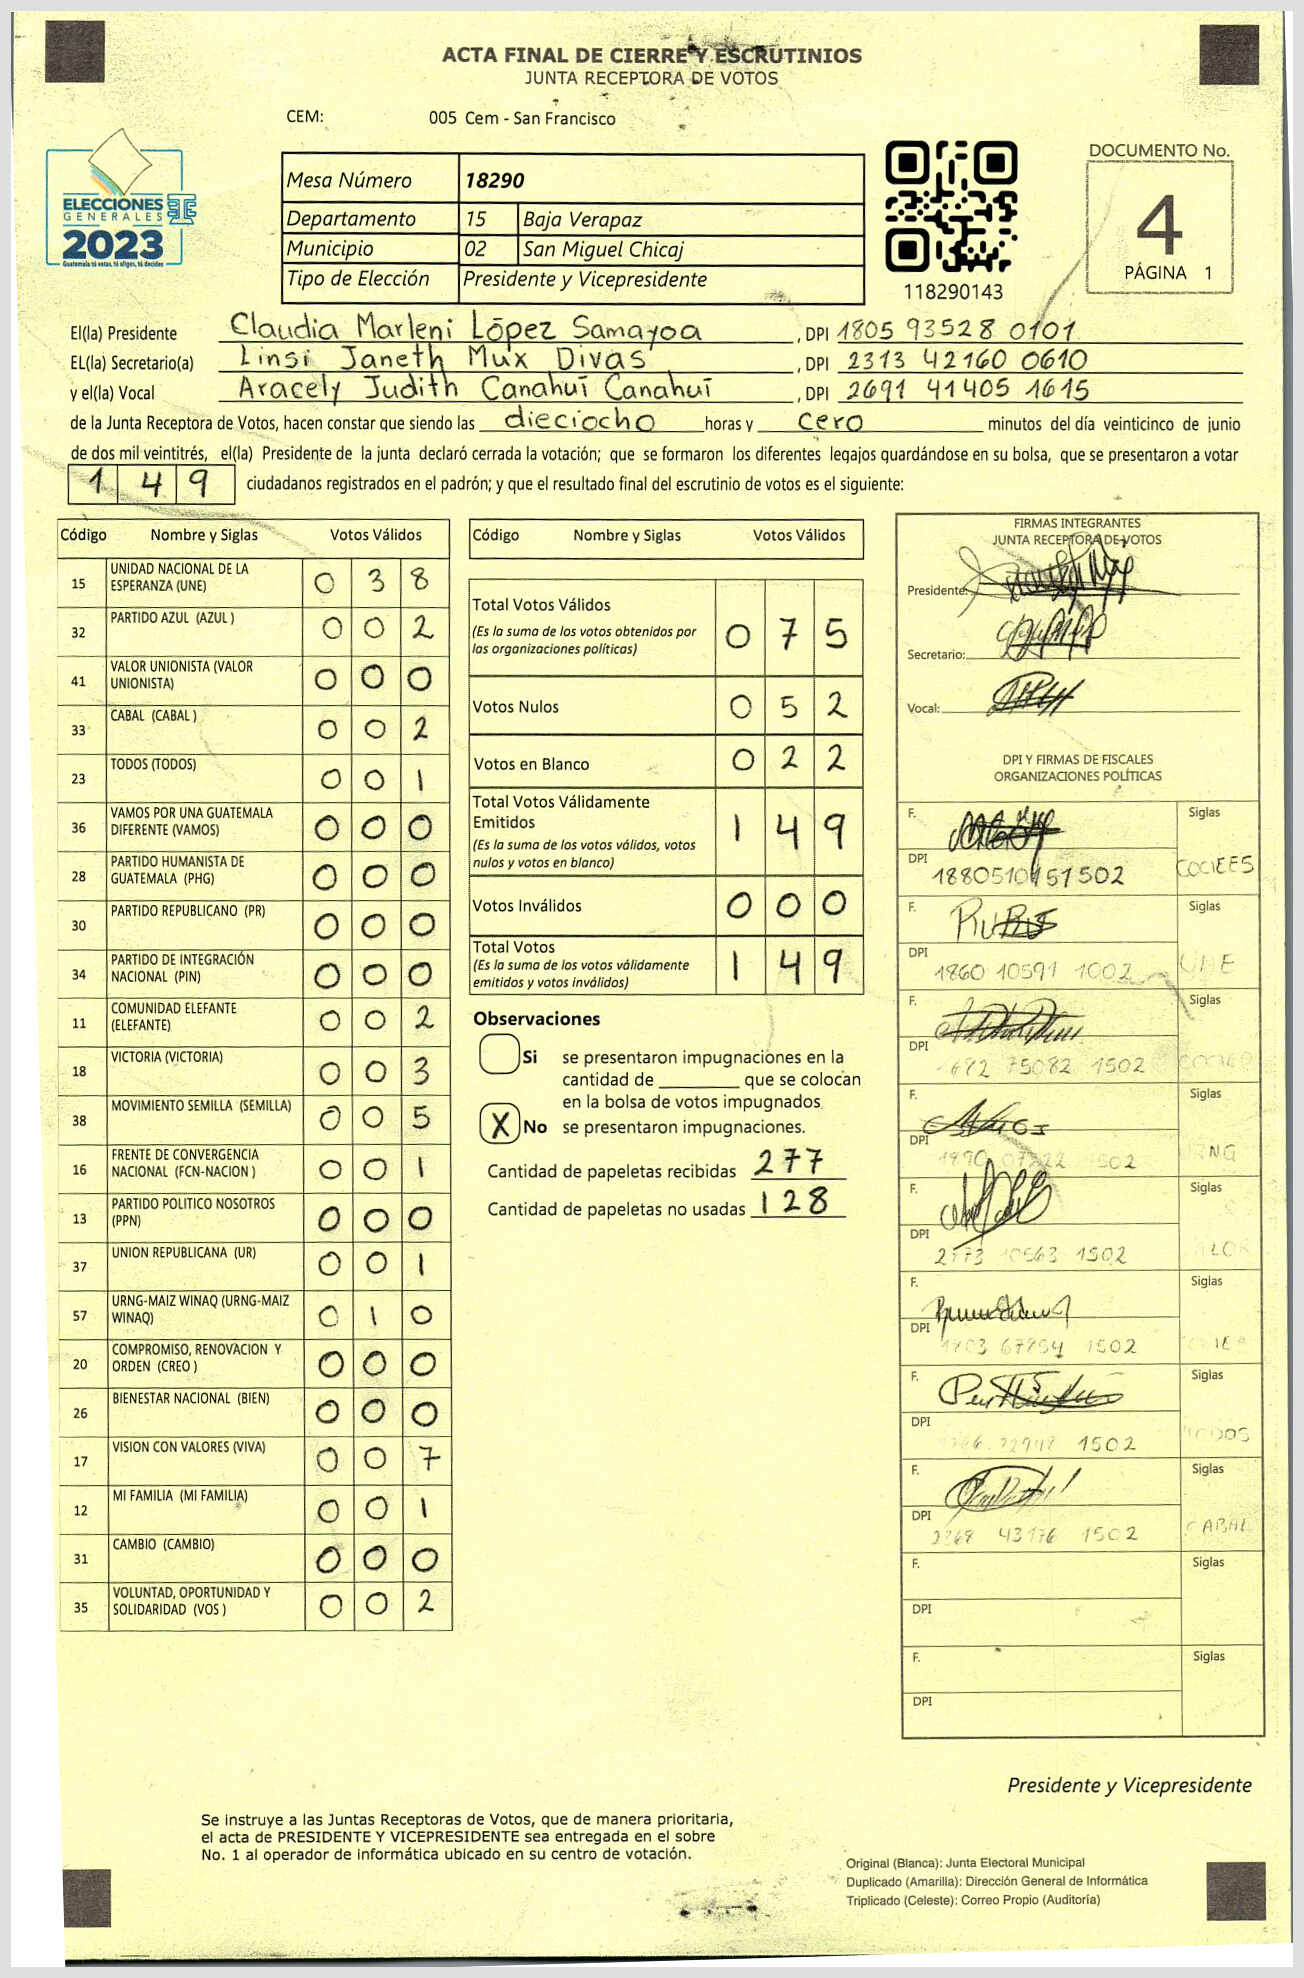 ACTA FINAL DE CIERRE Y ESCRUTINIOS
JUNTA RECEPTORA DE VOTOS
CEM: 005 Cem - San Francisco
ELECCIONES
GENERALES
2023
Guatemala tú votas, tú eliges, tú decides
Mesa Número 18290
Departamento 15 Baja Verapaz
Municipio 02 San Miguel Chicaj
Tipo de Elección Presidente y Vicepresidente
118290143
DOCUMENTO No.
4
PÁGINA 1
El(la) Presidente Claudia Marleni López Samayoa, DPI 1805 93528 0101
EL(la) Secretario(a) Linsi Janeth Mux Divas, DPI 2313 42160 0610
y el(la) Vocal Aracely Judith Canahuí Canahuí, DPI 2691 41405 1615
de la Junta Receptora de Votos, hacen constar que siendo las dieciocho horas y cero minutos del día veinticinco de junio
de dos mil veintitrés, el(la) Presidente de la junta declaró cerrada la votación; que se formaron los diferentes legajos guardándose en su bolsa, que se presentaron a votar
149 ciudadanos registrados en el padrón; y que el resultado final del escrutinio de votos es el siguiente:
Código Nombre y Siglas Votos Válidos
15 UNIDAD NACIONAL DE LA ESPERANZA (UNE) 0 3 8
32 PARTIDO AZUL (AZUL ) 0 0 2
41 VALOR UNIONISTA (VALOR UNIONISTA) 0 0 0
33 CABAL (CABAL ) 0 0 2
23 TODOS (TODOS) 0 0 1
36 VAMOS POR UNA GUATEMALA DIFERENTE (VAMOS) 0 0 0
28 PARTIDO HUMANISTA DE GUATEMALA (PHG) 0 0 0
30 PARTIDO REPUBLICANO (PR) 0 0 0
34 PARTIDO DE INTEGRACIÓN NACIONAL (PIN) 0 0 0
11 COMUNIDAD ELEFANTE (ELEFANTE) 0 0 2
18 VICTORIA (VICTORIA) 0 0 3
38 MOVIMIENTO SEMILLA (SEMILLA) 0 0 5
16 FRENTE DE CONVERGENCIA NACIONAL (FCN-NACION ) 0 0 1
13 PARTIDO POLITICO NOSOTROS (PPN) 0 0 0
37 UNION REPUBLICANA (UR) 0 0 1
57 URNG-MAIZ WINAQ (URNG-MAIZ WINAQ) 0 1 0
20 COMPROMISO, RENOVACION Y ORDEN (CREO ) 0 0 0
26 BIENESTAR NACIONAL (BIEN) 0 0 0
17 VISION CON VALORES (VIVA) 0 0 7
12 MI FAMILIA (MI FAMILIA) 0 0 1
31 CAMBIO (CAMBIO) 0 0 0
35 VOLUNTAD, OPORTUNIDAD Y SOLIDARIDAD (VOS ) 0 0 2
Código Nombre y Siglas Votos Válidos
Total Votos Válidos 0 7 5
(Es la suma de los votos obtenidos por
las organizaciones políticas)
Votos Nulos 0 5 2
Votos en Blanco 0 2 2
Total Votos Válidamente
Emitidos 1 4 9
(Es la suma de los votos válidos, votos
nulos y votos en blanco)
Votos Inválidos 0 0 0
Total Votos 1 4 9
(Es la suma de los votos válidamente
emitidos y votos inválidos)
Observaciones
Si se presentaron impugnaciones en la
cantidad de ________ que se colocan
en la bolsa de votos impugnados
X No se presentaron impugnaciones.
Cantidad de papeletas recibidas 277
Cantidad de papeletas no usadas 128
FIRMAS INTEGRANTES
JUNTA RECEPTORA DE VOTOS
Presidente:
Secretario:
Vocal:
DPI Y FIRMAS DE FISCALES
ORGANIZACIONES POLÍTICAS
F. Siglas
DPI
F. Siglas
DPI 1860 10591 1002 UNE
F. Siglas
DPI 75082 1502
F. Siglas
DPI 1502 URNG
F. Siglas
DPI 1502
F. Siglas
DPI 1502
F. Siglas
DPI 1502
F. Siglas
DPI 1502 CABAL
F. Siglas
DPI
F. Siglas
DPI
Presidente y Vicepresidente
Se instruye a las Juntas Receptoras de Votos, que de manera prioritaria,
el acta de PRESIDENTE Y VICEPRESIDENTE sea entregada en el sobre
No. 1 al operador de informática ubicado en su centro de votación.
Original (Blanca): Junta Electoral Municipal
Duplicado (Amarilla): Dirección General de Informática
Triplicado (Celeste): Correo Propio (Auditoría)